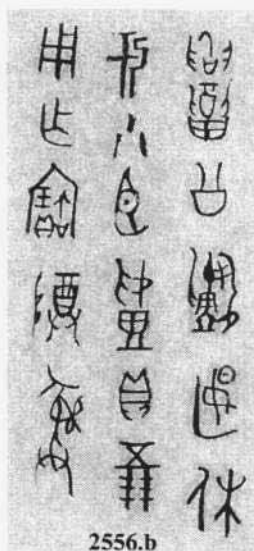 召公匽休
于小臣貝五朋
用乍寶尊彝
2556.b